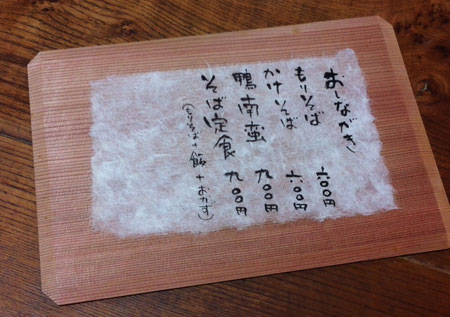 おしながき
もりそば 六〇〇円
かけそば 六〇〇円
鴨南蛮 九〇〇円
そば定食 九〇〇円
(もりそば+飯+おかず)